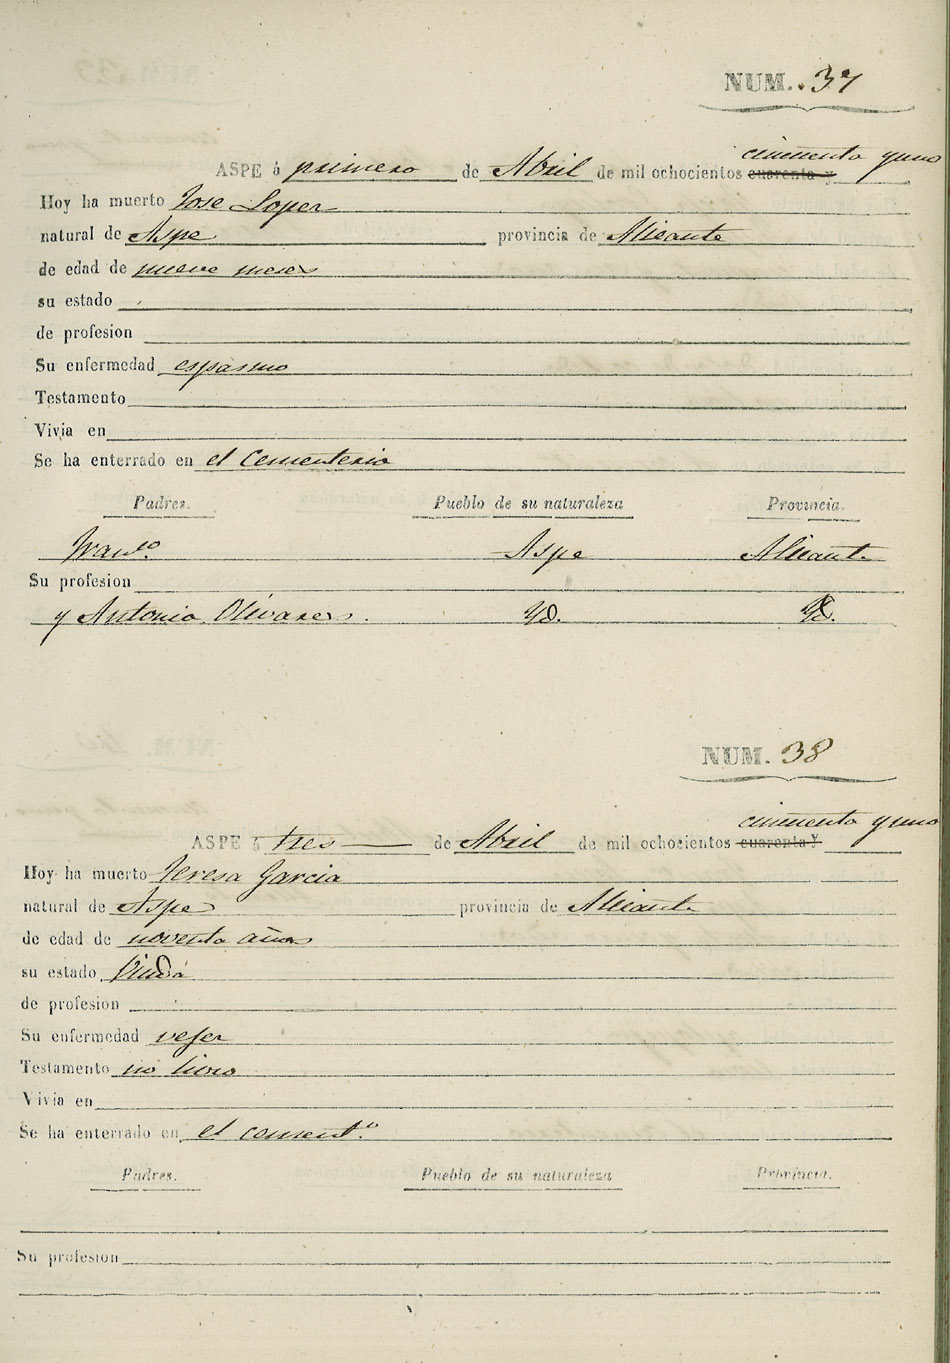 NUM. 37
cincuenta y uno
ASPE á primero de Abril de mil ochocientos cuarenta y
Hoy ha muerto Jose Loper
natural de Aspe provincia de Alicante
de edad de nueve meses
su estado
de profesion
Su enfermedad espasmo
Testamento
Vivia en
Se ha enterrado en el Cementerio
Padres. Pueblo de su naturaleza Provincia.
Franco. Aspe Alicante
Su profesion
y Antonia Olivares. Yd. Yd.
NUM. 38
cincuenta y uno
ASPE á tres de Abril de mil ochocientos cuarenta y
Hoy ha muerto Teresa Garcia
natural de Aspe provincia de Alicante
de edad de noventa años
su estado Viuda
de profesion
Su enfermedad vejer
Testamento no hizo
Vivia en
Se ha enterrado en el cement.o
Padres. Pueblo de su naturaleza Provincia.
Su profesion